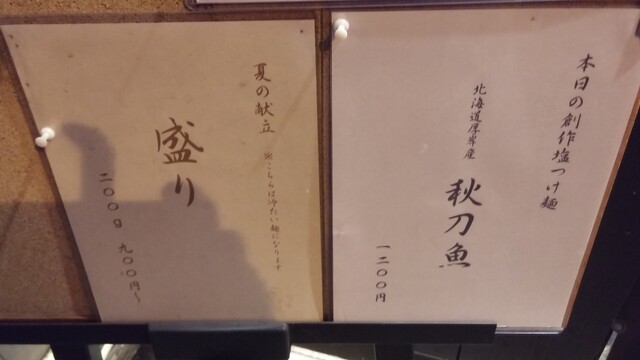 本日の創作塩つけ麺
北海道厚岸産
秋刀魚
一二〇〇円
夏の献立
※こちらは冷たい麺になります
盛り
二〇〇g 九〇〇円～